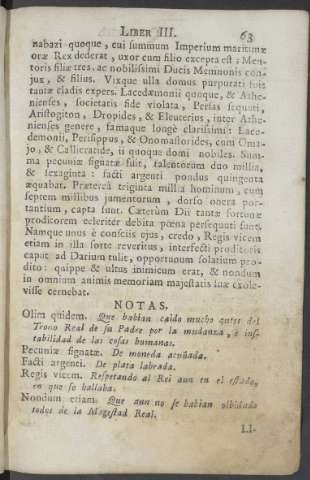 LIBER III. 63
nabazi quoque, cui summum Imperium maritimæ
oræ Rex dederat, uxor cum filio excepta est; Men-
toris filiæ tres, ac nobilissimi Ducis Memnonis con-
jux, & filius. Vixque ulla domus purpurati fuit
tantæ cladis expers. Lacedæmonii quoque, & Athe-
nienses, societatis fide violata, Persas sequuti,
Aristogiton, Dropides, & Eleuterius, inter Athe-
nienses genere, famaque longè clarissimi: Lace-
demonii, Perisippus, & Onomastorides, cum Oma-
jo, & Callicratide, ii quoque domi nobiles. Sum-
ma pecuniæ signatæ fuit, talentorum duo millia,
& sexaginta: facti argenti pondus quingenta
æquabat. Præterea triginta millia hominum, cum
septem millibus jumentorum, dorso onera por-
tantium, capta sunt. Cæterùm Dii tantæ fortunæ
proditorem celeriter debita pœna persequuti sunt.
Namque unus è consciis ejus, credo, Regis vicem
etiam in illa sorte reveritus, interfecti proditoris
caput ad Darium tulit, opportunum solatium pro-
dito: quippe & ultus inimicum erat, & nondum
in omnium animis memoriam majestatis suæ exole-
visse cernebat.
NOTAS.
Olim quidem. Que habian caìdo mucho antes del
Trono Real de su Padre por la mudanza, è ins-
tabilidad de las cosas humanas.
Pecuniæ signatæ. De moneda acuñada.
Facti argenti. De plata labrada.
Regis vicem. Respetando al Rei aun en el estado,
en que se hallaba.
Nondum etiam. Que aun no se habian olbidado
todos de la Magestad Real.
LI-